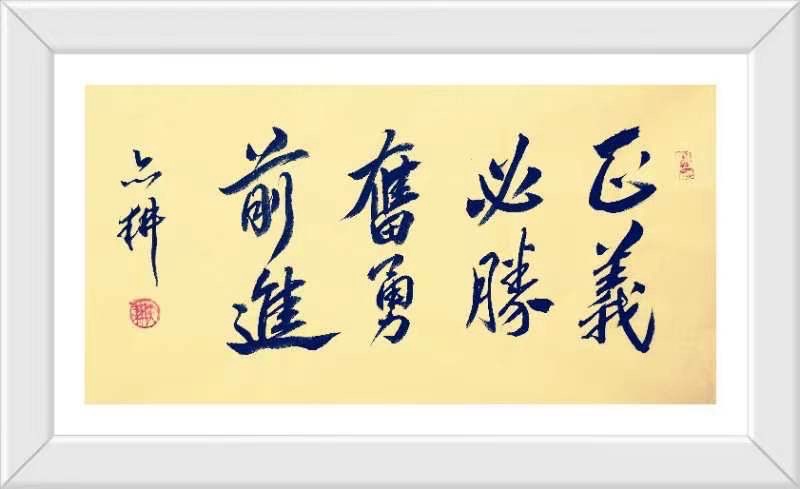 正義
必勝
奮勇
前進
亦耕